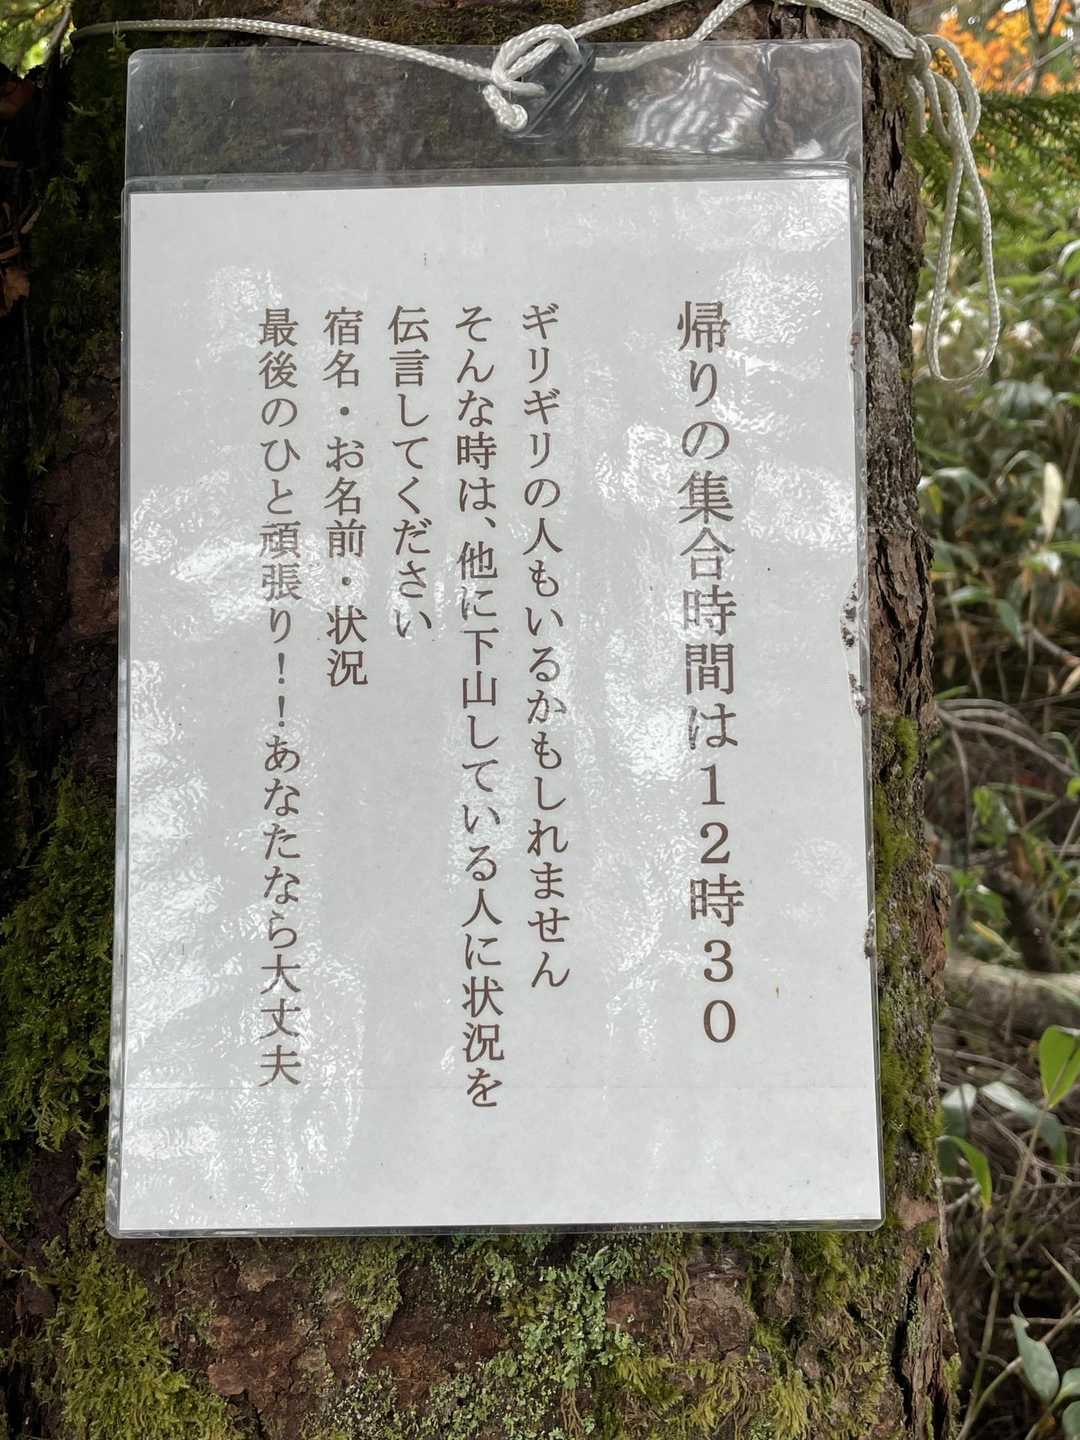 帰りの集合時間は12時30
ギリギリの人もいるかもしれません
そんな時は、他に下山している人に状況を
伝言してください
宿名・お名前・状況
最後のひと頑張り!!あなたなら大丈夫